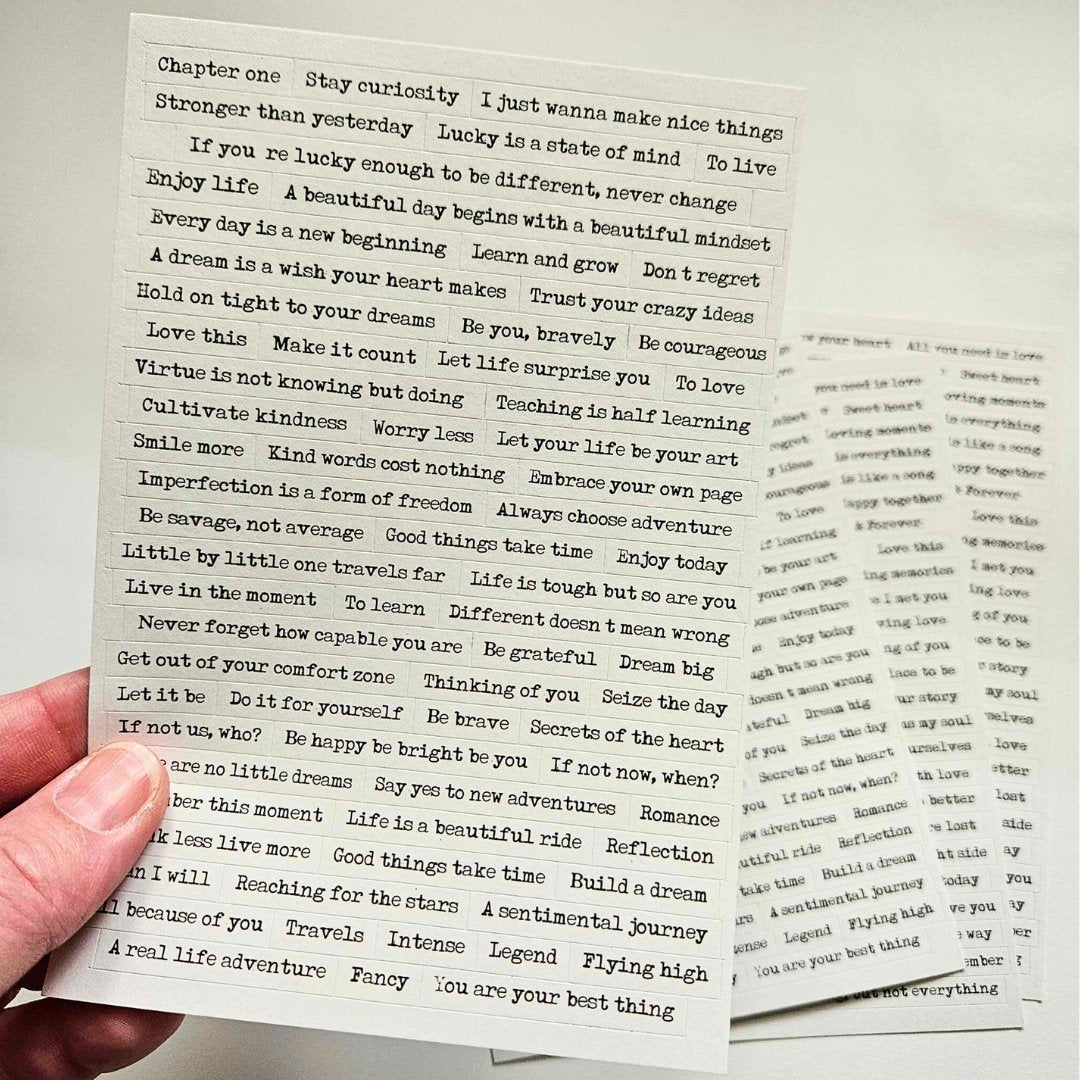 Chapter one Stay curiosity I just wanna make nice things
Stronger than yesterday Lucky is a state of mind To live
If you re lucky enough to be different, never change
Enjoy life A beautiful day begins with a beautiful mindset
Every day is a new beginning Learn and grow Don t regret
A dream is a wish your heart makes Trust your crazy ideas
Hold on tight to your dreams Be you, bravely Be courageous
Love this Make it count Let life surprise you To love
Virtue is not knowing but doing Teaching is half learning
Cultivate kindness Worry less Let your life be your art
Smile more Kind words cost nothing Embrace your own page
Imperfection is a form of freedom Always choose adventure
Be savage, not average Good things take time Enjoy today
Little by little one travels far Life is tough but so are you
Live in the moment To learn Different doesn t mean wrong
Never forget how capable you are Be grateful Dream big
Get out of your comfort zone Thinking of you Seize the day
Let it be Do it for yourself Be brave Secrets of the heart
If not us, who? Be happy be bright be you If not now, when?
are no little dreams Say yes to new adventures Romance
this moment Life is a beautiful ride Reflection
less live more Good things take time Build a dream
I will Reaching for the stars A sentimental journey
because of you Travels Intense Legend Flying high
A real life adventure Fancy You are your best thing
you need is love
Sweet heart
loving moments
is everything
is like a song
To love happy together
learning & Forever
be your art Love this
your own page memories
adventure I met you
Enjoy today love
but so are you of you
doesn t mean wrong to be
Dream big story
of you Seize the day my soul
Secrets of the heart
you If not now, when? love
adventures Romance better
ride Reflection lost
take time Build a dream side
A sentimental journey today
Legend Flying high you
You are your best thing way
your heart All you need is love
Sweet heart
moments
everything
like a song
together
Forever
Love this
memories
I met you
love
of you
to be
story
my soul
love
lost
side
you
not everything